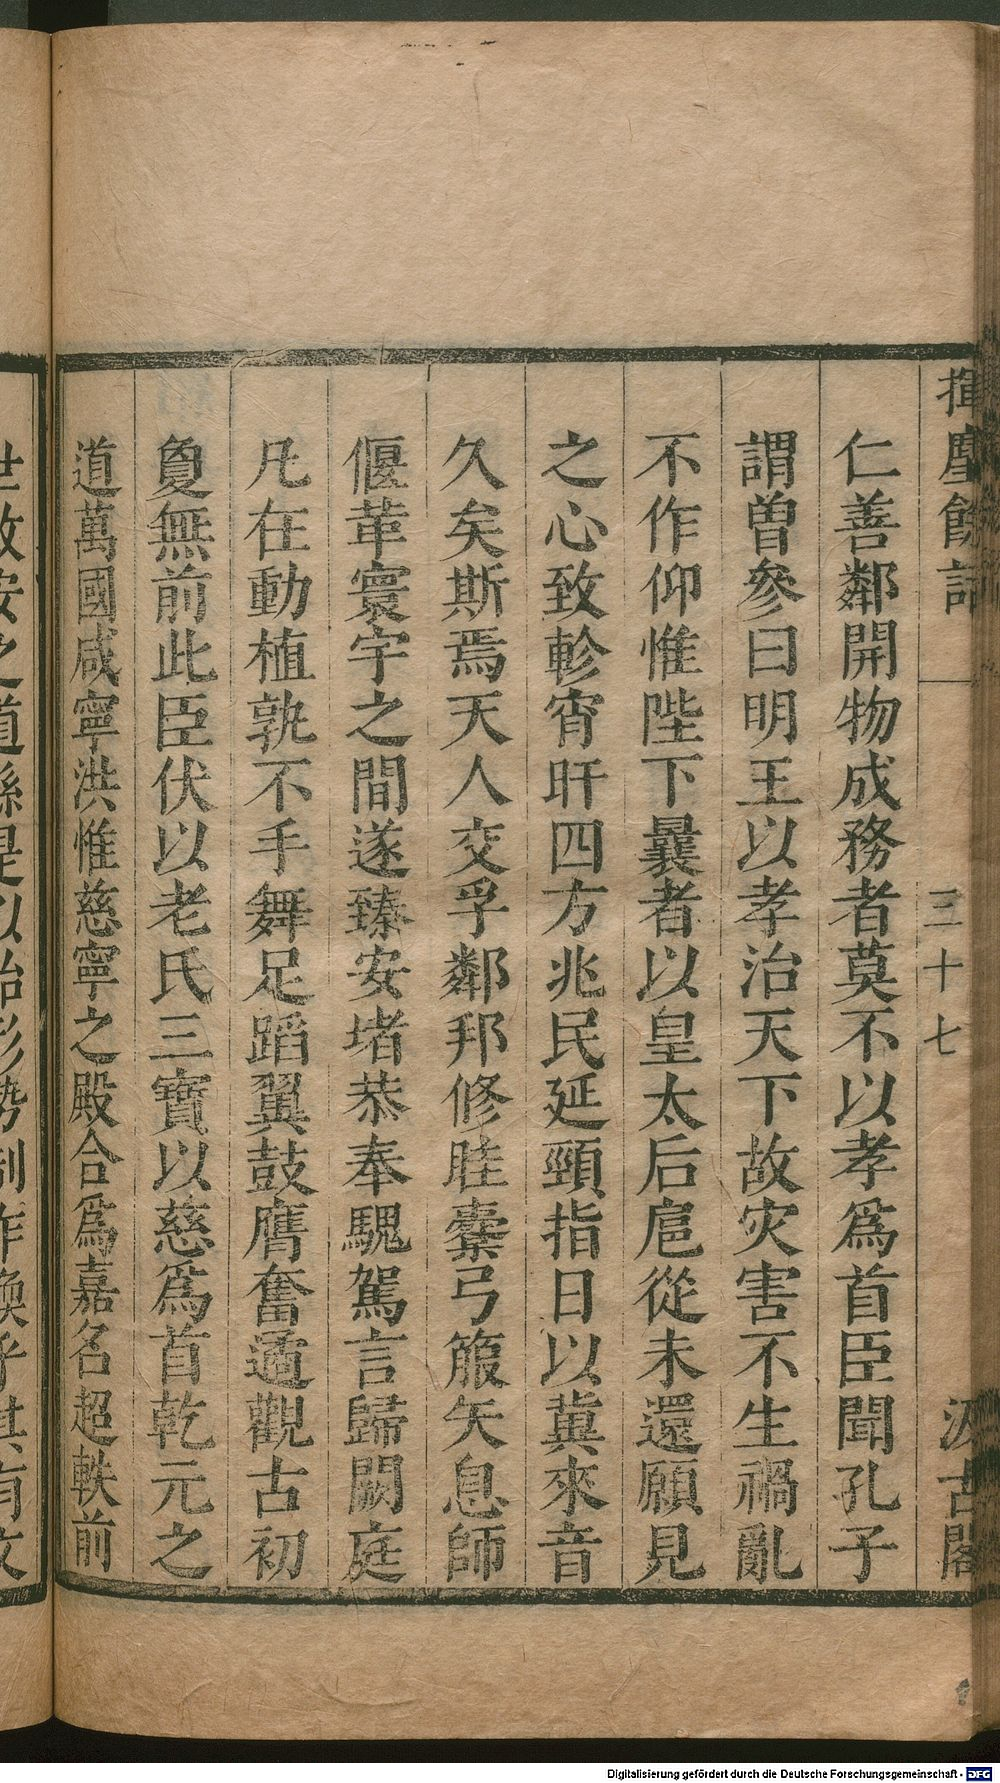 揮麈餘話
三十七
汲古閣
仁善鄰開物成務者莫不以孝爲首臣聞孔子
謂曾參曰明王以孝治天下故灾害不生禍亂
不作仰惟陛下曩者以皇太后扈從未還願見
之心致軫宵旰四方兆民延頸指日以冀來音
久矣斯焉天人交孚鄰邦修睦櫜弓箙矢息師
偃革寰宇之間遂臻安堵恭奉騩駕言歸闕庭
凡在動植孰不手舞足蹈翼鼓膺奮遹觀古初
敻無前此臣伏以老氏三寶以慈爲首乾元之
道萬國咸寧洪惟慈寧之殿合爲嘉名超軼前
世敉安之道繇是以始形勢制作煥乎其有文
Digitalisierung gefördert durch die Deutsche Forschungsgemeinschaft - DFG